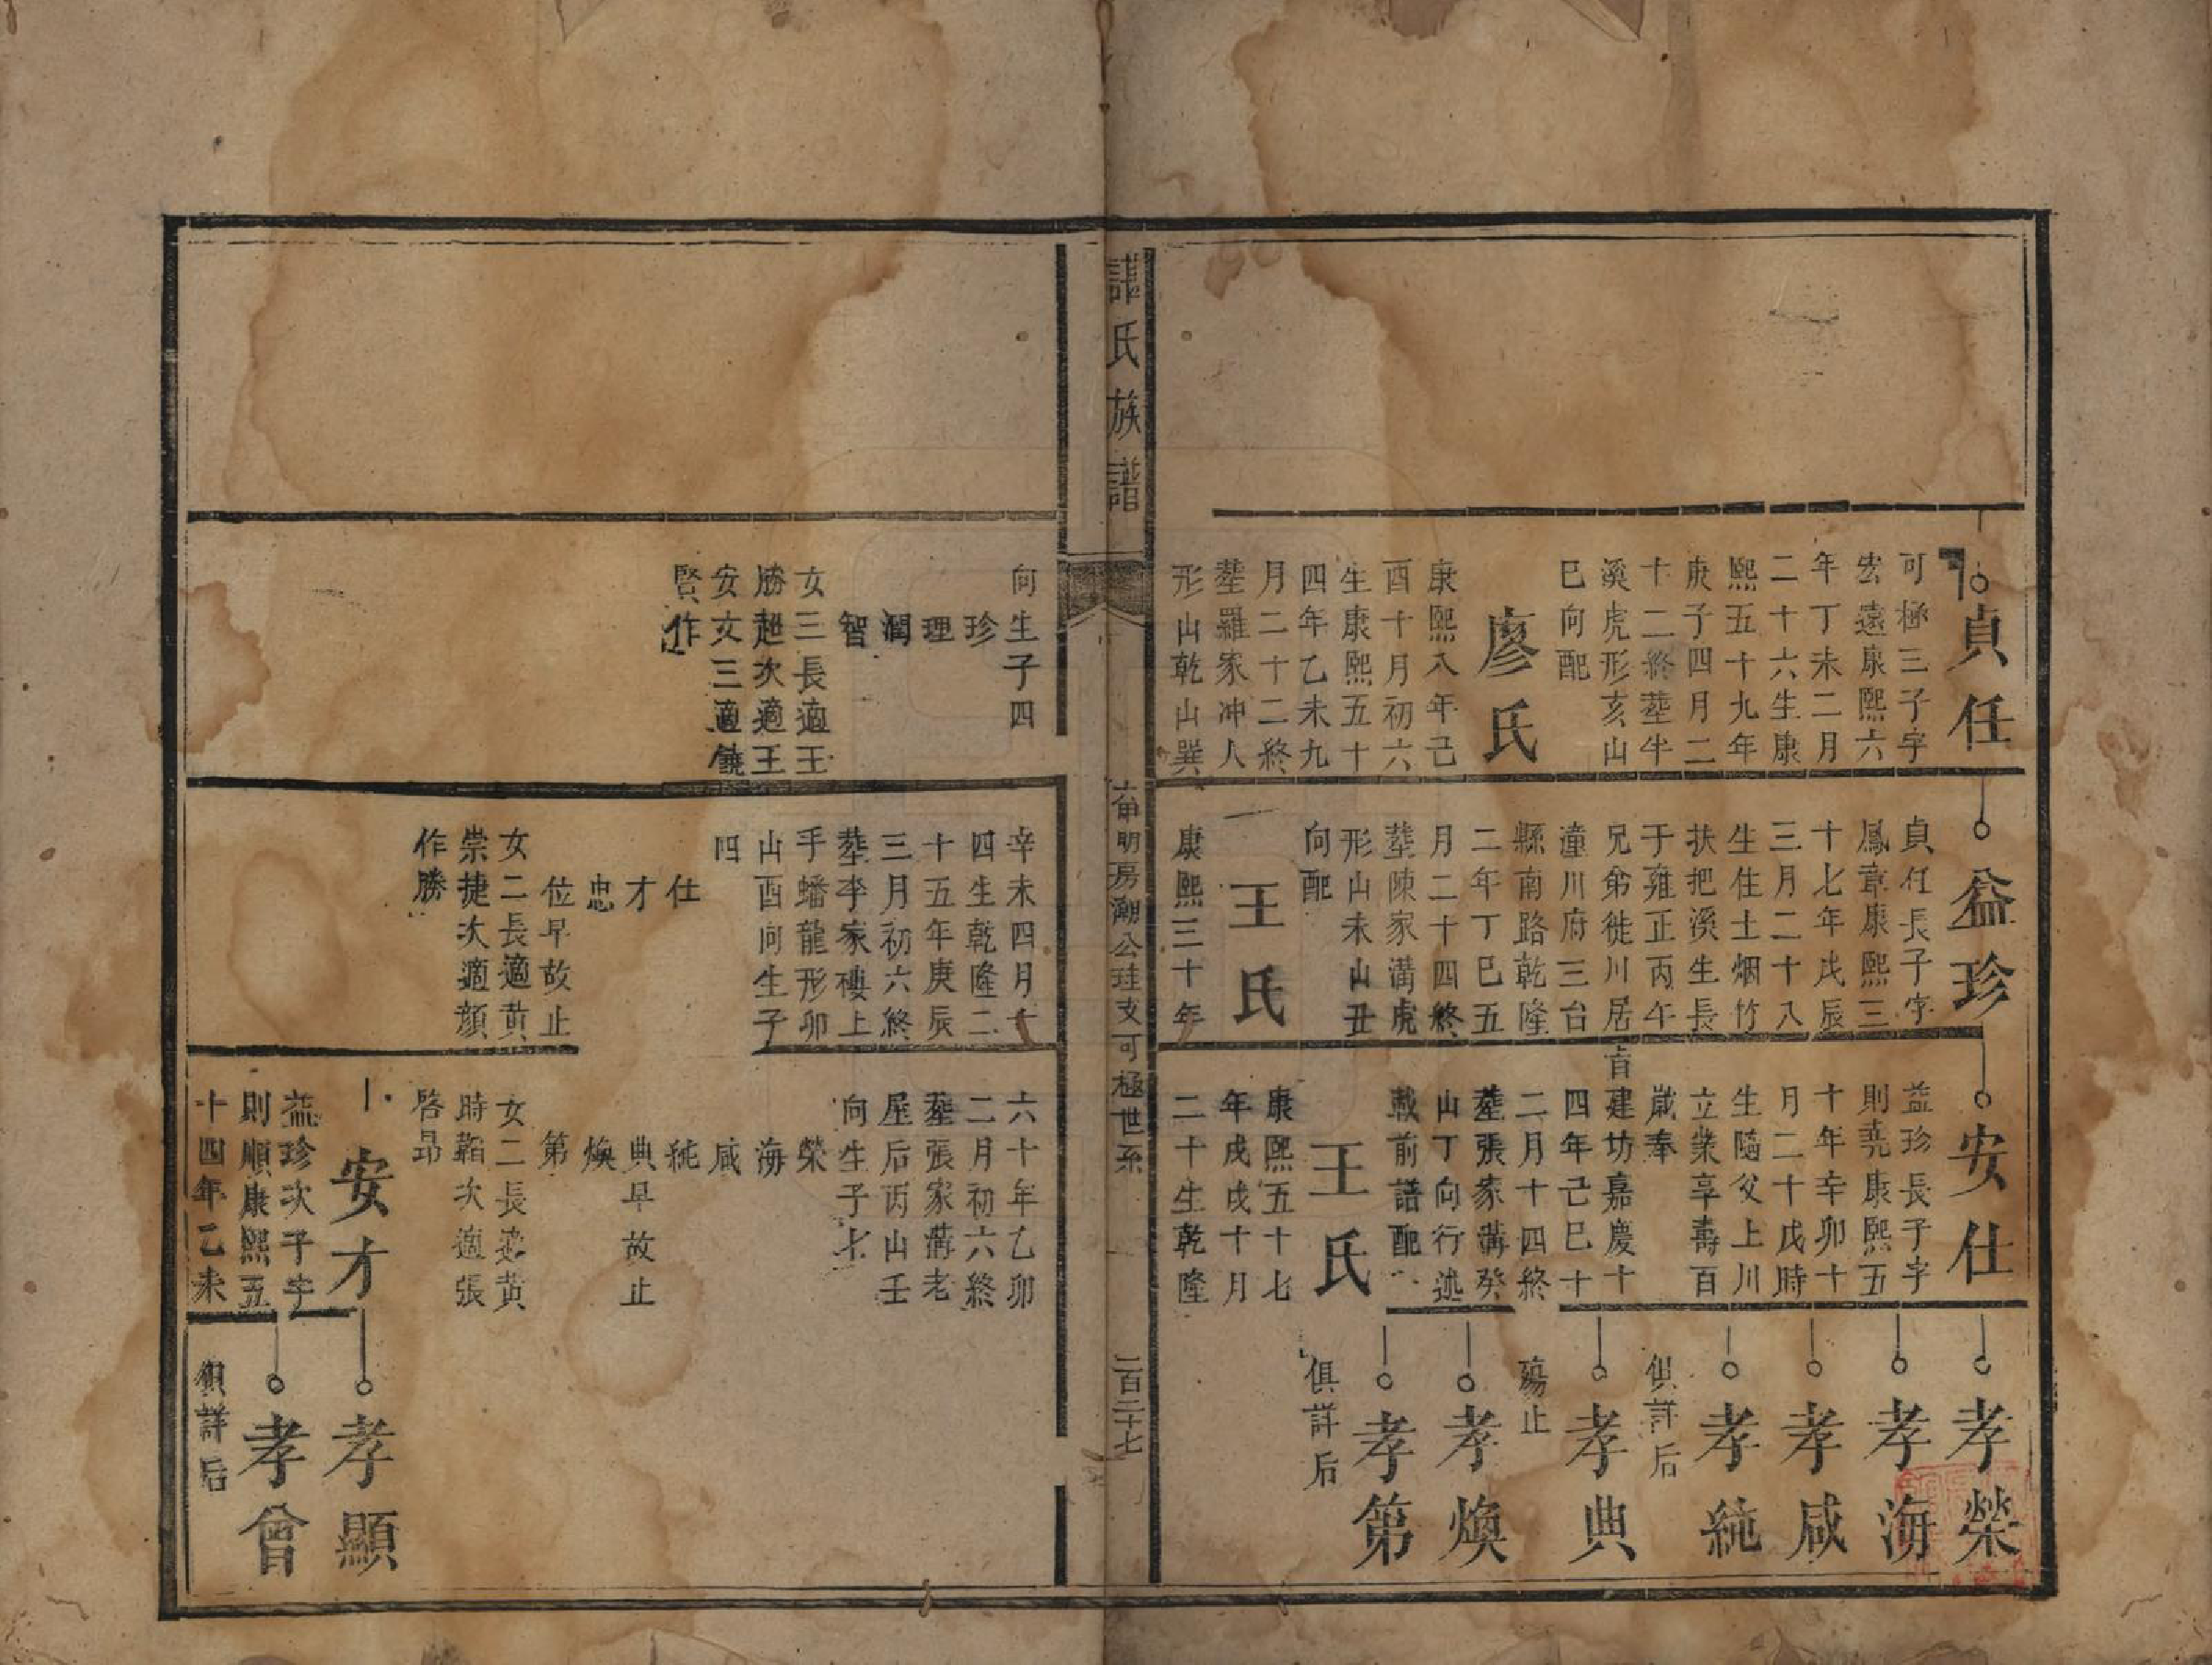 貞任
可極三子字
宏遠康熙六
年丁未二月
二十六生康
熙五十九年
庚子四月二
十二終塟牛
溪虎形亥山
巳向配
廖氏
康熙八年己
酉十月初六
生康熙五十
四年乙未九
月二十二終
塟羅家冲人
形山乾山巽
益珍
貞任長子字
鳳章康熙三
十七年戊辰
三月二十八
生住土烟竹
扶把溪生長
于雍正丙午
兄弟徙川居
潼川府三台
縣南路乾隆
二年丁巳五
月二十四終
塟陳家溝虎
形山未山丑
向配
王氏
康熙三十年
安仕
益珍長子字
則堯康熙五
十年辛卯十
月二十戊時
生隨父上川
立業享壽百
歲奉
旨建坊嘉慶十
四年己巳十
二月十四終
塟張家溝癸
山丁向行述
載前譜配
王氏
康熙五十七
年戊戌十月
二十生乾隆
孝榮
孝海
孝咸
孝純
俱詳后
孝典
殤止
孝煥
孝第
俱詳后
譚氏族譜
苗明房潮公珪支可極世系
二百二十七
向生子四
珍
理
潤
智
女三長適王
勝超次適王
安文三適饒
賢作
辛未四月十
四生乾隆二
十五年庚辰
三月初六終
塟李家樓上
手蟠龍形卯
山酉向生子
四
仕
才
忠
位早故止
女二長適黄
崇捷次適顏
作勝
六十年乙卯
二月初六終
塟張家溝老
屋后丙山壬
向生子七
榮
海
咸
純
典早故止
煥
第
女二長適黄
時韜次適張
啓昂
安才
益珍次子字
則順康熙五
十四年乙未
孝顯
孝曾
俱詳后